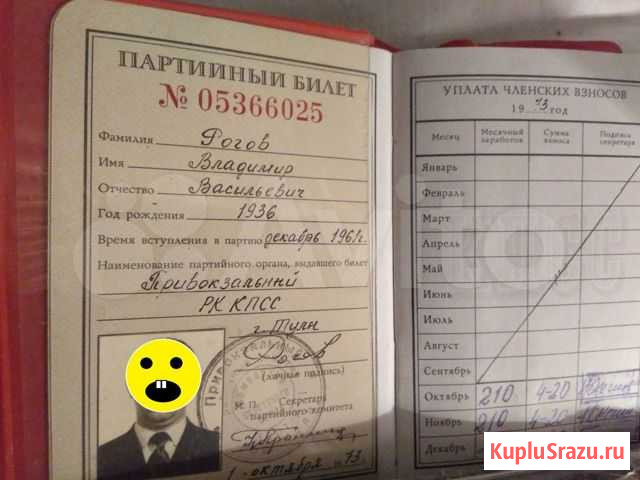 ПАРТИЙНЫЙ БИЛЕТ
№ 05366025
Фамилия Рогов
Имя Владимир
Отчество Васильевич
Год рождения 1936
Время вступления в партию декабрь 1961г.
Наименование партийного органа, выдавшего билет
Привокзальный
РК КПСС
г. Тулы
Рогов
(личная подпись)
М. П. Секретарь
партийного комитета
1 октября 1973
УПЛАТА ЧЛЕНСКИХ ВЗНОСОВ
1973 год
Месяц Месячный заработок Сумма взноса Подпись секретаря
Январь
Февраль
Март
Апрель
Май
Июнь
Июль
Август
Сентябрь
Октябрь 210 4-20
Ноябрь 210 4-20
Декабрь
KupluSrazu.ru